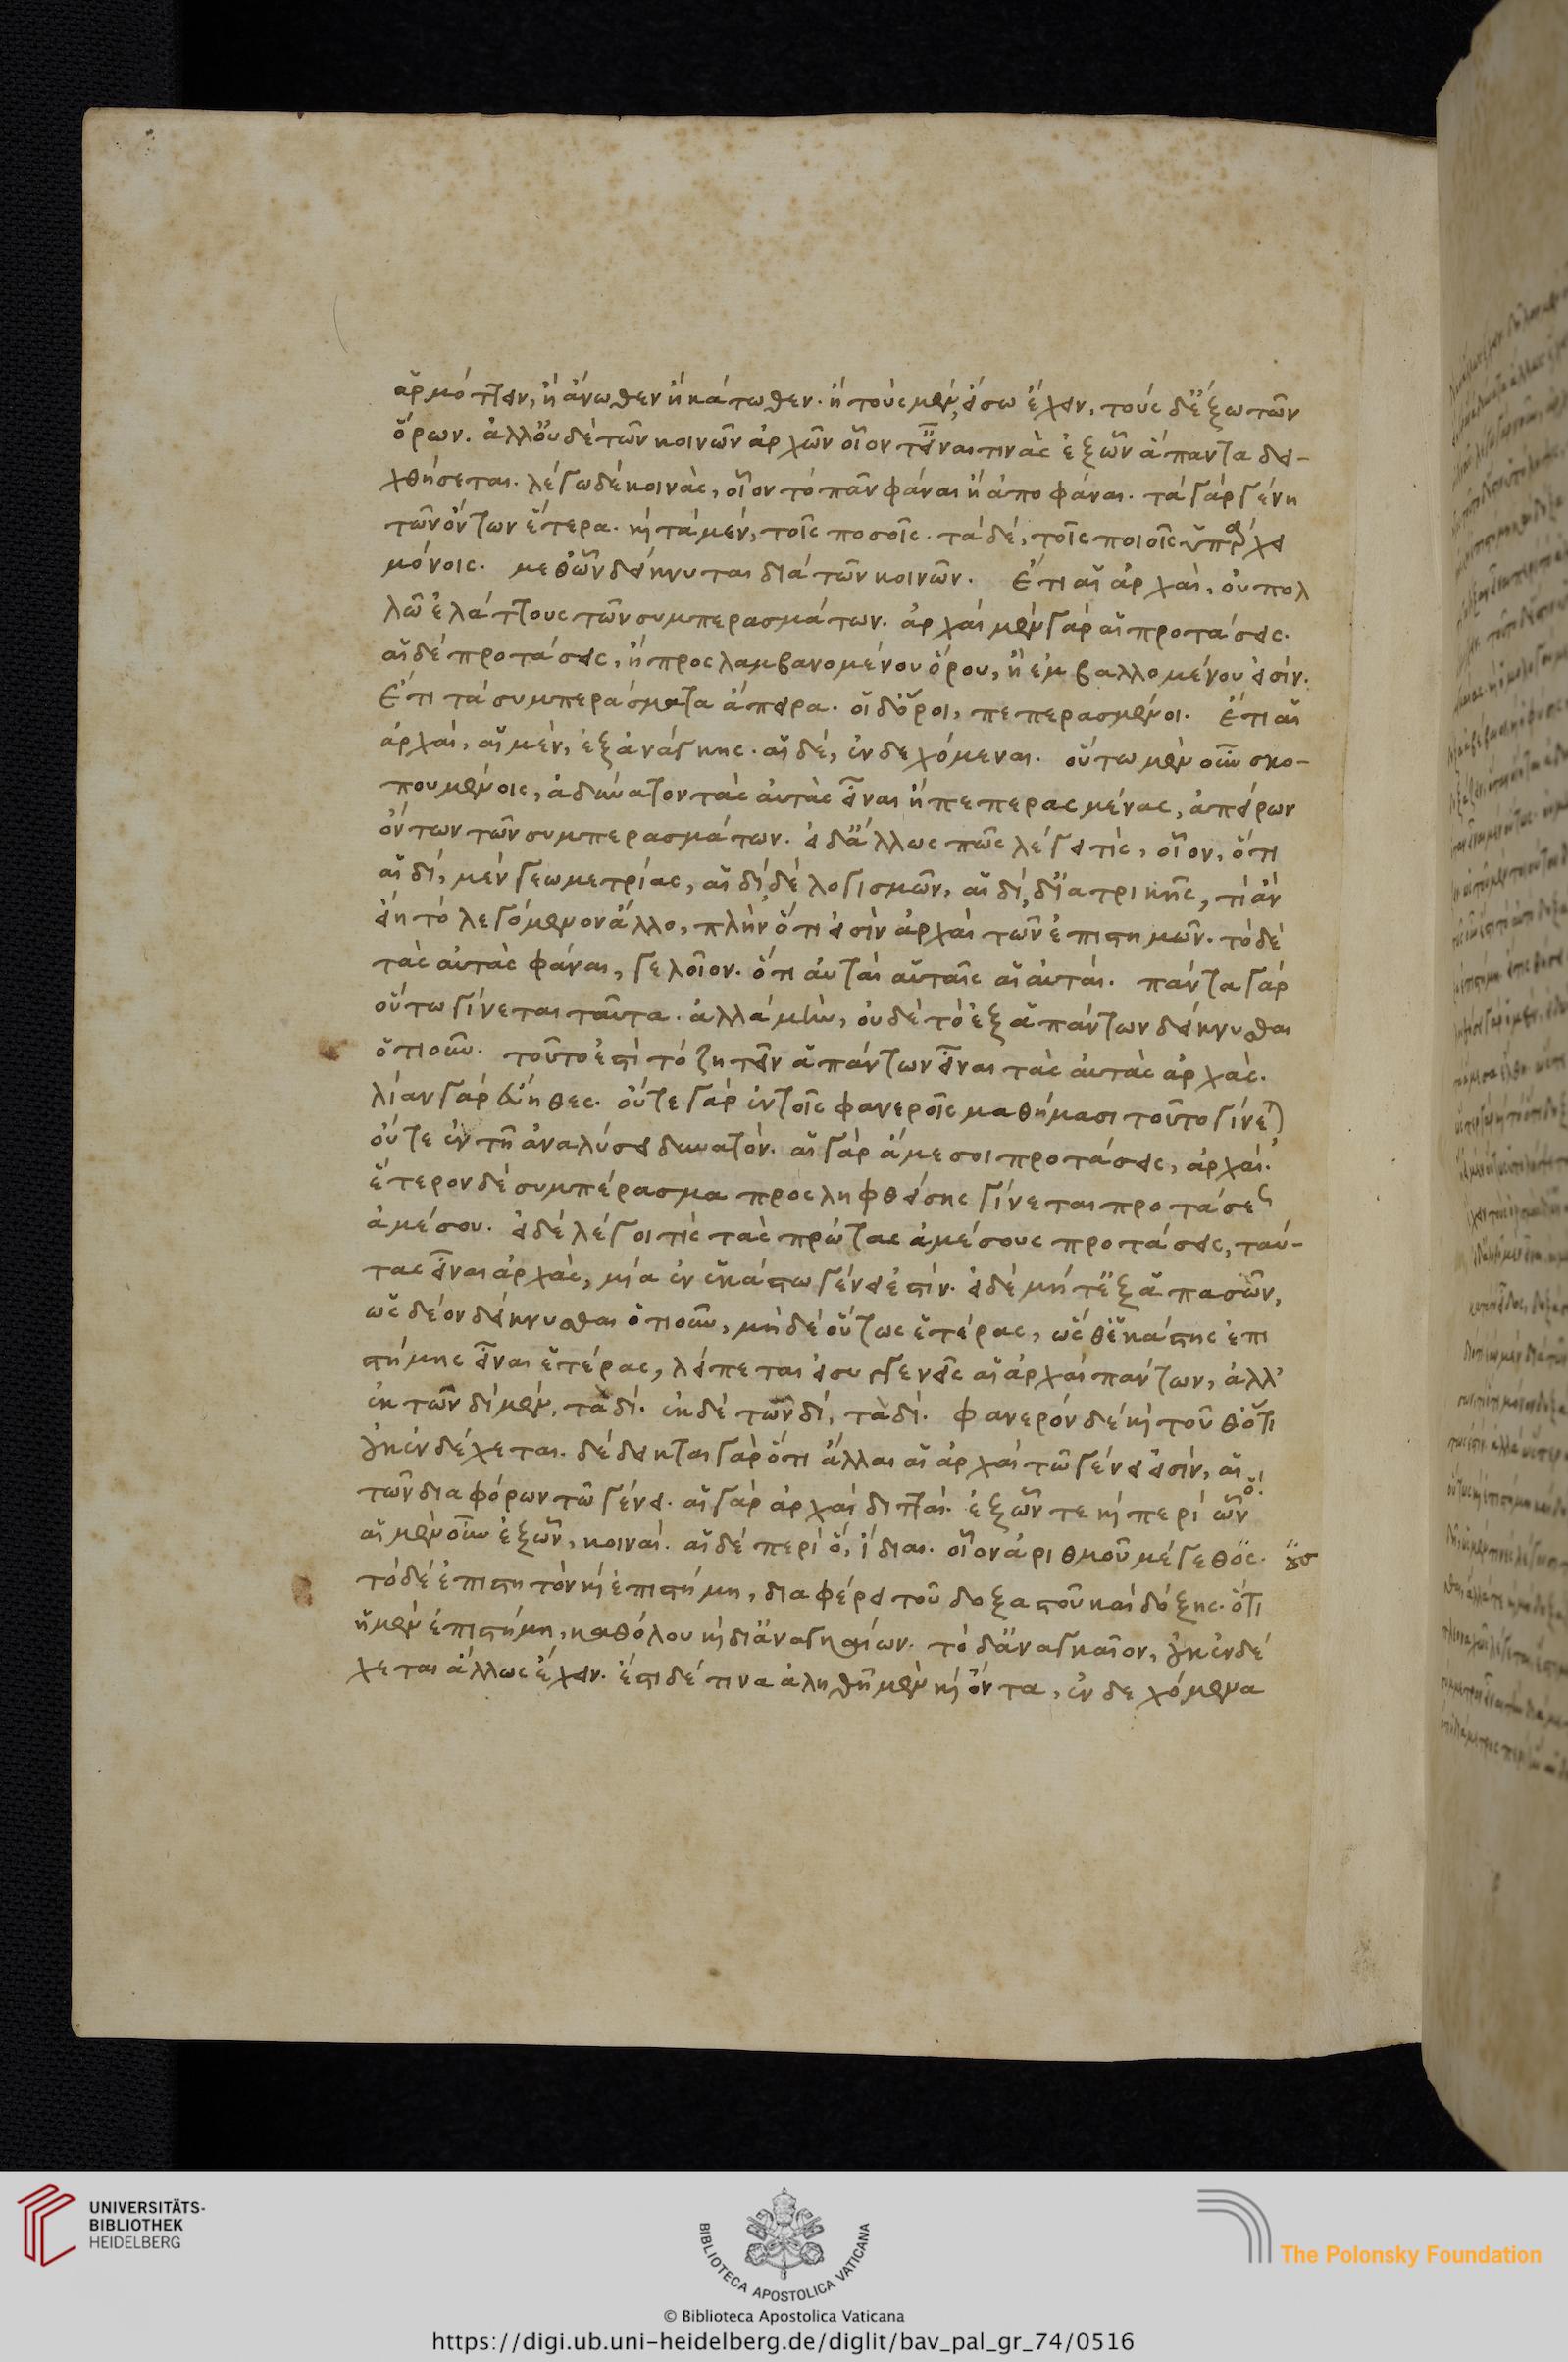 ἁρμόττειν, ἢ ἄνωθεν ἢ κάτωθεν. ἢ τοὺς μὲν, εἴσω ἔχειν, τοὺς δ' ἔξω τῶν
ὅρων. ἀλλ' οὐδὲ τῶν κοινῶν ἀρχῶν οἷον τ' εἶναι τινὰς ἐξ ὧν ἅπαντα δει-
χθήσεται. λέγω δὲ κοινὰς, οἷον τὸ πᾶν φάναι ἢ ἀποφάναι. τὰ γὰρ γένη
τῶν ὄντων ἕτερα. καὶ τὰ μὲν, τοῖς ποσοῖς. τὰ δὲ, τοῖς ποιοῖς ὑπάρχει
μόνοις. μεθ' ὧν δείκνυται διὰ τῶν κοινῶν. Ἔτι αἱ ἀρχαὶ, οὐ πολ
λῶ ἐλάττους τῶν συμπερασμάτων. ἀρχαὶ μὲν γὰρ αἱ προτάσεις.
αἱ δὲ προτάσεις, ἢ προσλαμβανομένου ὅρου, ἢ ἐμβαλλομένου εἰσίν.
Ἔτι τὰ συμπεράσματα ἄπειρα. οἱ δ' ὅροι, πεπερασμένοι. Ἔτι αἱ
ἀρχαὶ, αἱ μὲν, ἐξ ἀνάγκης. αἱ δὲ, ἐνδεχόμεναι. οὕτω μὲν οὖν σκο-
πουμένοις, ἀδύνατον τὰς αὐτὰς εἶναι ἢ πεπερασμένας, ἀπείρων
ὄντων τῶν συμπερασμάτων. εἰ δ' ἄλλως πῶς λέγει τὶς, οἷον, ὅτι
αἱ δὶ, μὲν γεωμετρίας, αἱ δὶ δὲ λογισμῶν, αἱ δὶ, δ' ἰατρικῆς, τί ἂν
εἴη τὸ λεγόμενον ἄλλο, πλὴν ὅτι εἰσὶν ἀρχαὶ τῶν ἐπιστημῶν. τὸ δὲ
τὰς αὐτὰς φάναι, γελοῖον. ὅτι αὐταὶ αὑταῖς αἱ αὐταί. πάντα γὰρ
οὕτω γίνεται ταῦτα. ἀλλὰ μὴν, οὐδὲ τὸ ἐξ ἁπάντων δείκνυσθαι
ὁτιοῦν. τοῦτο ἐστὶ τὸ ζητεῖν ἁπάντων εἶναι τὰς αὐτὰς ἀρχάς.
λίαν γὰρ εὔηθες. οὔτε γὰρ ἐν τοῖς φανεροῖς μαθήμασι τοῦτο γίνεται
οὔτε ἐν τῆ ἀναλύσει δυνατόν. αἱ γὰρ ἄμεσοι προτάσεις, ἀρχαί.
ἕτερον δὲ συμπέρασμα προσληφθείσης γίνεται προτάσεως
ἀμέσου. εἰ δὲ λέγοι τὶς τὰς πρώτας ἀμέσους προτάσεις, ταύ-
τας εἶναι ἀρχὰς, μία ἐν ἑκάστω γένει ἐστίν. εἰ δὲ μήτ' ἐξ ἁπασῶν,
ὡς δέον δείκνυσθαι ὁτιοῦν, μὴ δὲ οὕτως ἑτέρας, ὥσθ' ἑκάστης ἐπι
στήμης εἶναι ἑτέρας, λείπεται εἰ συγγενεῖς αἱ ἀρχαὶ πάντων, ἀλλ'
ἐκ τῶν δὶ μὲν, τὰ δί. ἐκ δὲ τῶν δὶ, τὰ δί. φανερὸν δὲ καὶ τοῦθ' ὅτι
οὐκ ἐνδέχεται. δέδεικται γὰρ ὅτι ἄλλαι αἱ ἀρχαὶ τῶ γένει εἰσὶν, αἱ
τῶν διαφόρων τῶ γένει. αἱ γὰρ ἀρχαὶ διτταί. ἐξ ὧν τε καὶ περὶ ὧν ὅ.
αἱ μὲν οὖν ἐξ ὧν, κοιναί. αἱ δὲ περὶ ὅ, ἴδιαι. οἷον ἀριθμοῦ μέγεθος.
τὸ δὲ ἐπιστητὸν καὶ ἐπιστήμη, διαφέρει τοῦ δοξαστοῦ καὶ δόξης. ὅτι
ἡ μὲν ἐπιστήμη, καθόλου καὶ δι' ἀναγκαίων. τὸ δ' ἀναγκαῖον, οὐκ ἐνδέ
χεται ἄλλως ἔχειν. ἔστι δέ τινα ἀληθῆ μὲν καὶ ὄντα, ἐνδεχόμενα
UNIVERSITÄTS-
BIBLIOTHEK
HEIDELBERG
BIBLIOTECA APOSTOLICA VATICANA
The Polonsky Foundation
© Biblioteca Apostolica Vaticana
https://digi.ub.uni-heidelberg.de/diglit/bav_pal_gr_74/0516